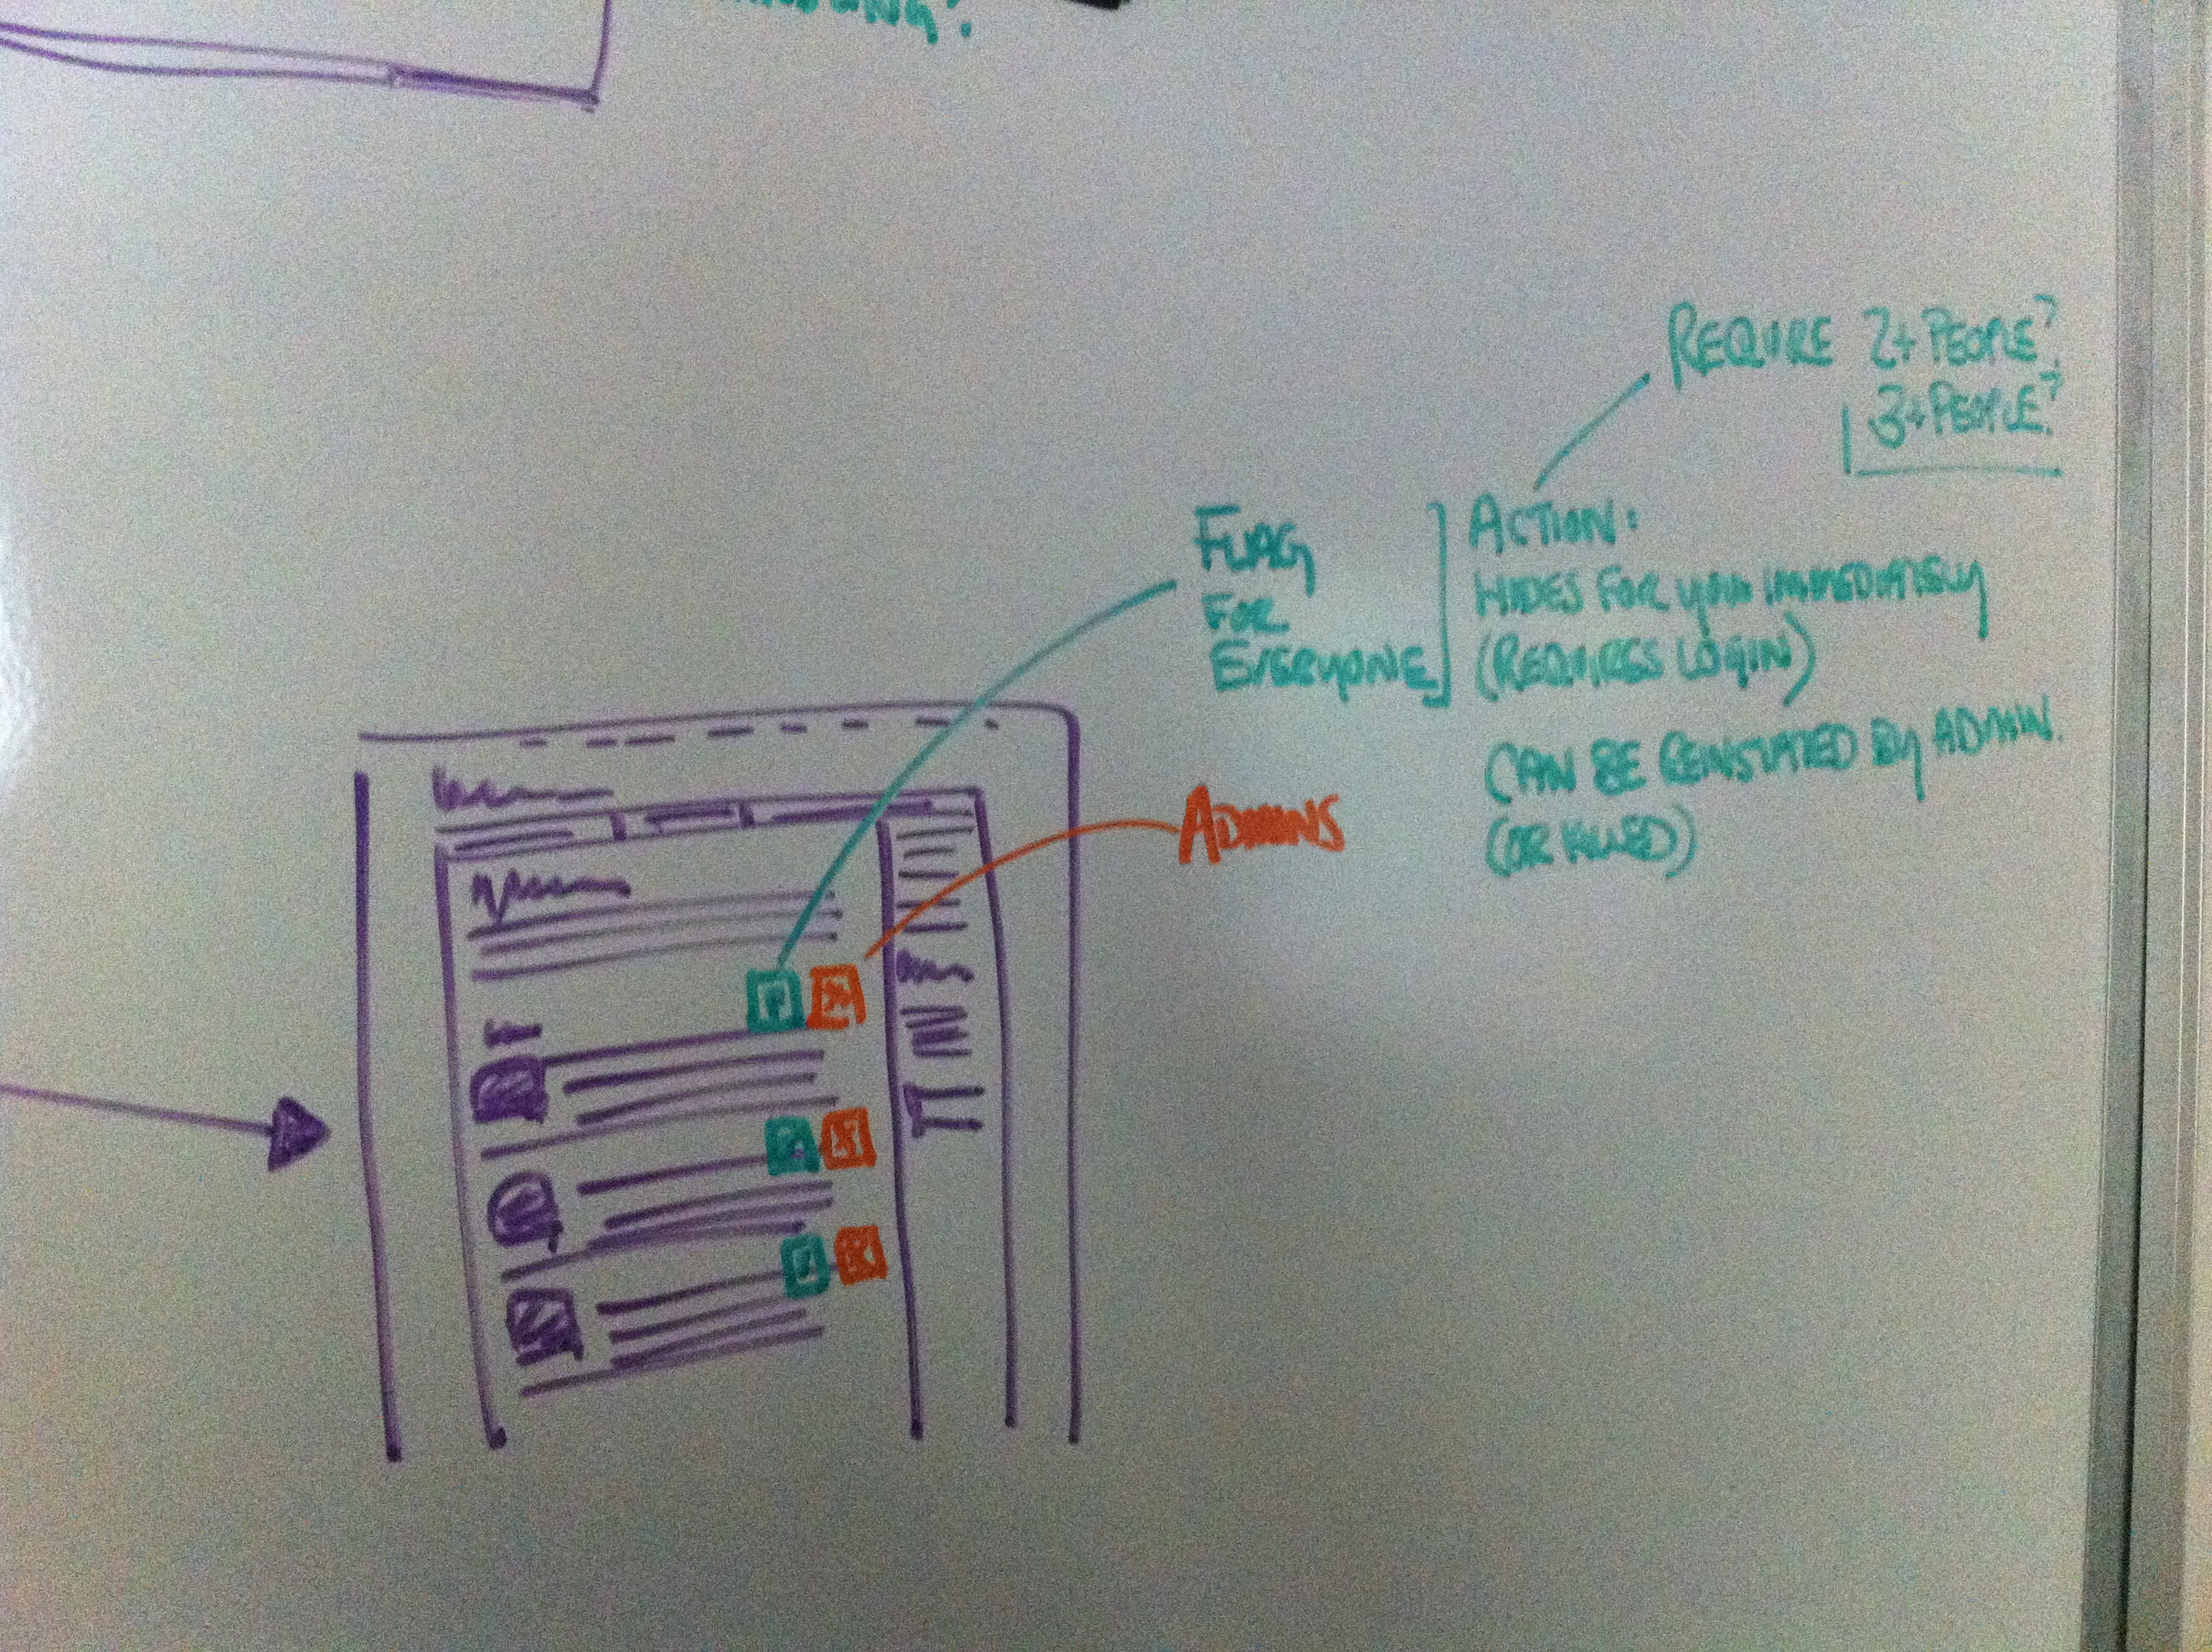 REQUIRE 2+ PEOPLE?
3+ PEOPLE?
FLAG
FOR
EVERYONE
ACTION:
HIDES FOR YOU IMMEDIATELY
(REQUIRES LOGIN)
CAN BE REINSTATED BY ADMIN.
(OR KILLED)
ADMINS